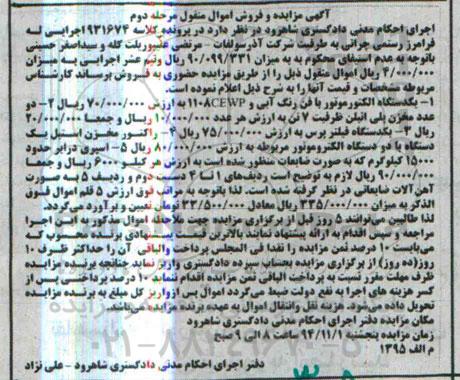 آگهی مزایده و فروش اموال منقول مرحله دوم
اجرای احکام مدنی دادگستری شاهرود در نظر دارد در پرونده کلاسه ۹۳۱۶۷۴ اجرایی له
فرامرز رستمی چراتی به طرفیت شرکت آذر سولفات - مرتضی علیپوریلت کله و سیداصغر حسینی
باتوجه به عدم استیفای محکوم به به میزان ۹۰/۰۹۹/۳۳۱ ریال و نیم عشر اجرایی به میزان
۴/۰۰۰/۰۰۰ ریال اموال منقول ذیل را از طریق مزایده حضوری به فروش برساند کارشناس
مربوطه مشخصات و قیمت آنها را به شرح ذیل اعلام نموده است.
۱- یکدستگاه الکتروموتور با فن رنگ آبی و ۱۱۰۸CEWP به ارزش ۷۰/۰۰۰/۰۰۰ ریال ۲- دو
عدد مخزن پلی اتیلن ظرفیت ۷ تن به ارزش هر عدد ۱۰/۰۰۰/۰۰۰ ریال و جمعا ۲۰/۰۰۰/۰۰۰
ریال ۳- یکدستگاه فیلتر پرس به ارزش ۷۵/۰۰۰/۰۰۰ ریال ۴- راکتور مخزن استیل یک
دستگاه با دو دستگاه الکتروموتور مربوطه به ارزش ۸۰/۰۰۰/۰۰۰ ریال ۵- اسپری درایر حدود
۱۵۰۰۰ کیلوگرم که به صورت ضایعات منظور شده است به ارزش هر کیلو ۶۰۰۰ ریال و جمعا
۹۰/۰۰۰/۰۰۰ ریال لازم به توضیح است ردیف‌های ۱ تا ۴ دست دوم و ردیف ۵ به صورت
آهن آلات ضایعاتی در نظر گرفته شده است. لذا باتوجه به مراتب فوق ارزش ۵ قلم اموال فوق
الذکر به میزان ۳۳۵/۰۰۰/۰۰۰ ریال معادل ۳۳/۵۰۰/۰۰۰ تومان تعیین و برآورد می‌گردد.
لذا طالبین می‌توانند ۵ روز قبل از برگزاری مزایده جهت ملاحظه اموال مذکور به این اجرا
مراجعه و سپس اقدام به ارائه پیشنهاد نمایند بالاترین قیمت پیشنهادی برنده محسوب که
می‌بایست ۱۰ درصد ثمن مزایده را نقدا فی المجلس پرداخت و الباقی آن را حداکثر ظرف ۱۰
روز(ده روز) از برگزاری مزایده بحساب سپرده دادگستری واریز نماید چنانچه برنده مزایده
ظرف مهلت مقرر نسبت به پرداخت الباقی ثمن مزایده اقدام ننماید ۱۰ درصد پرداختی پس از
کسر هزینه های اجرا به نفع دولت ضبط می‌گردد اموال پس از واریز کل مبلغ به برنده مزایده
تحویل داده می‌شود. هزینه نقل و انتقال اموال به عهده برنده مزایده می‌باشد.
مکان مزایده دفتر اجرای احکام مدنی دادگستری شاهرود
زمان مزایده پنجشنبه ۹۴/۱۱/۱ ساعت ۸ الی ۹ صبح
م الف ۱۳۹۵
دفتر اجرای احکام مدنی دادگستری شاهرود - علی نژاد